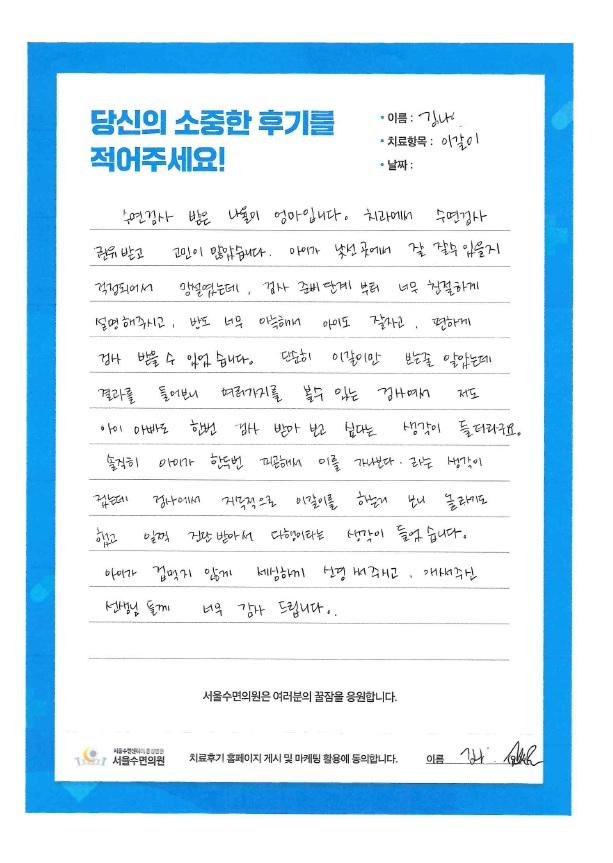 당신의 소중한 후기를
적어주세요!
• 이름 : 김나
• 치료항목 : 이갈이
• 날짜 :
수면검사 받은 나율이 엄마입니다. 치과에서 수면검사
권유받고 고민이 많았습니다. 아이가 낯선 곳에서 잘 잘수 있을지
걱정되어서 망설였는데, 검사 준비단계 부터 너무 친절하게
설명해주시고, 방도 너무 아늑해서 아이도 잘자고, 편하게
검사 받을 수 있었습니다. 단순히 이갈이만 보는줄 알았는데
결과를 들어보니 여러가지를 볼수 있는 검사여서 저도
아이 아빠도 한번 검사 받아 보고 싶다는 생각이 들더라구요.
솔직히 아이가 한두번 피곤해서 이를 가나보다. 라는 생각이
컸는데 검사에서 지속적으로 이갈이를 하는거 보니 놀라기도
했고 일찍 진단 받아서 다행이라는 생각이 들었습니다.
아이가 겁먹지 않게 세심하게 설명해주시고,
선생님들께 너무 감사 드립니다.
서울수면의원은 여러분의 꿀잠을 응원합니다.
서울수면센터의 중심병원
서울수면의원
치료후기 홈페이지 게시 및 마케팅 활용에 동의합니다. 이름 김나